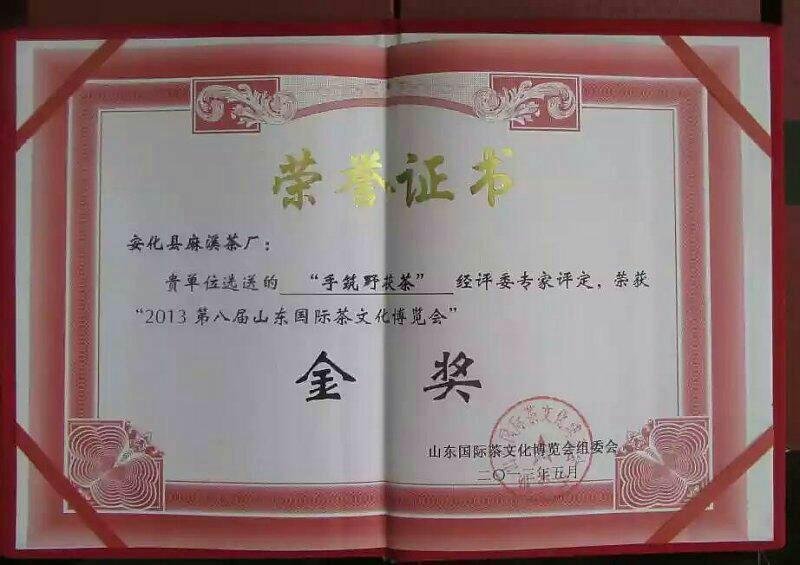 荣誉证书
安化县麻溪茶厂：
贵单位选送的 “手筑野茯茶” 经评委专家评定，荣获
“2013 第八届山东国际茶文化博览会”
金 奖
山东国际茶文化博览会组委会
二〇一三年五月
国际茶文化博